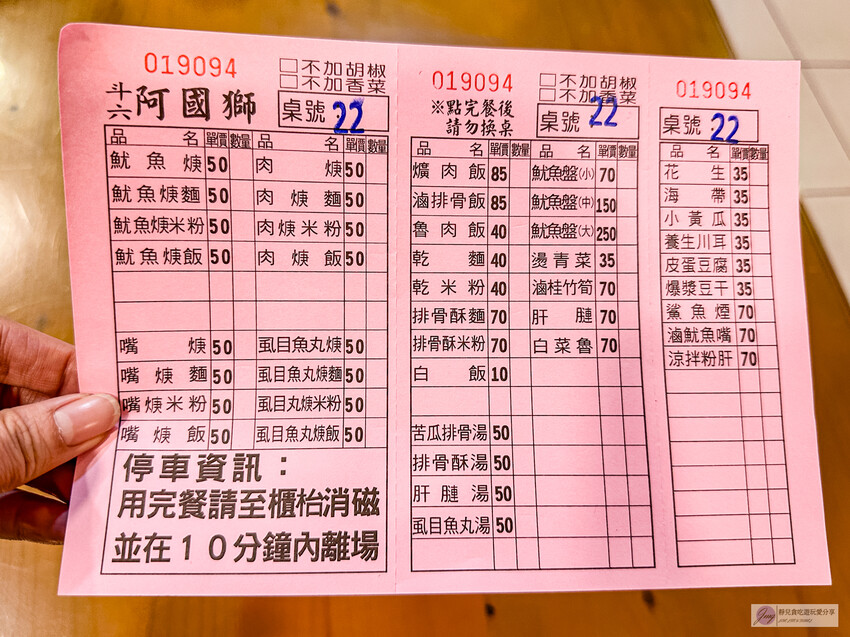 019094
□不加胡椒
□不加香菜
斗六 阿國獅
桌號 22
品名 單價 數量 品名 單價 數量
魷魚焿 50 肉焿 50
魷魚焿麵 50 肉焿麵 50
魷魚焿米粉 50 肉焿米粉 50
魷魚焿飯 50 肉焿飯 50
嘴焿 50 虱目魚丸焿 50
嘴焿麵 50 虱目魚丸焿麵 50
嘴焿米粉 50 虱目丸焿米粉 50
嘴焿飯 50 虱目魚丸焿飯 50
停車資訊：
用完餐請至櫃枱消磁
並在10分鐘內離場
019094
□不加胡椒
□不加香菜
※點完餐後
請勿換桌
桌號 22
品名 單價 數量 品名 單價 數量
爌肉飯 85 魷魚盤(小) 70
滷排骨飯 85 魷魚盤(中) 150
魯肉飯 40 魷魚盤(大) 250
乾麵 40 燙青菜 35
乾米粉 40 滷桂竹筍 70
排骨酥麵 70 肝膤 70
排骨酥米粉 70 白菜魯 70
白飯 10
苦瓜排骨湯 50
排骨酥湯 50
肝膤湯 50
虱目魚丸湯 50
019094
桌號 22
品名 單價 數量
花生 35
海帶 35
小黃瓜 35
養生川耳 35
皮蛋豆腐 35
爆漿豆干 35
鯊魚煙 70
滷魷魚嘴 70
涼拌粉肝 70
靜兒貪吃遊玩愛分享